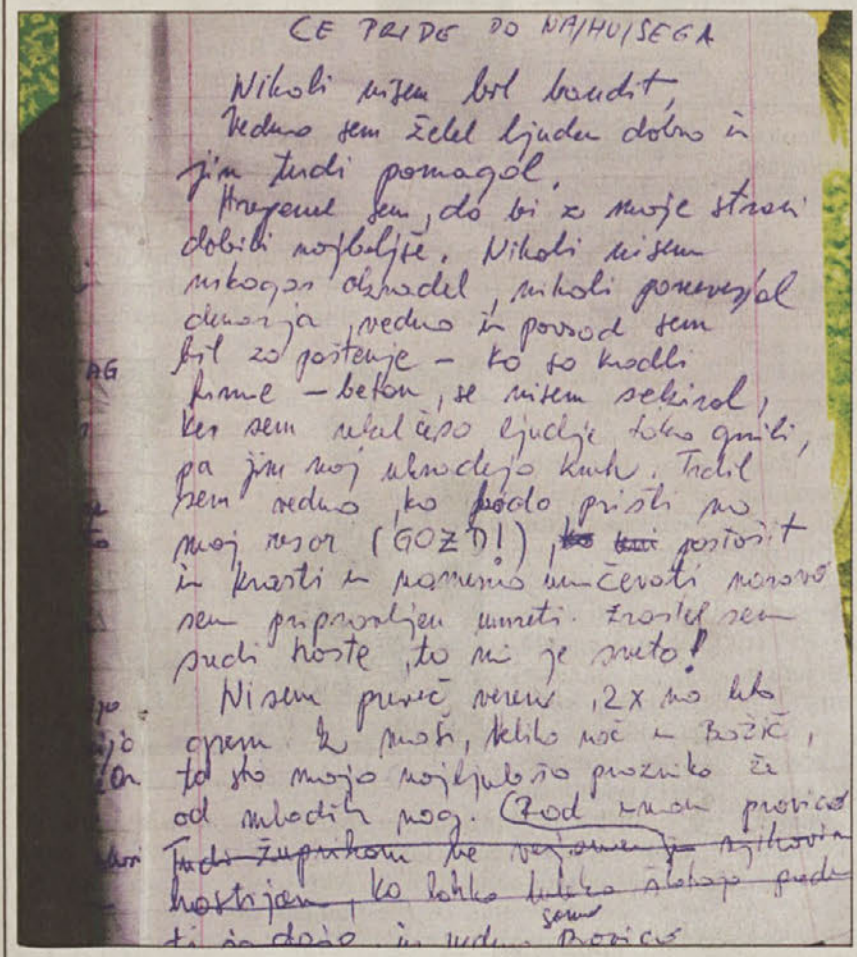 ČE PRIDE DO NAJHUJŠEGA
Nikoli nisem bil bandit,
Vedno sem želel ljudem dobro in
jim tudi pomagal.
sem, da bi z moje strani
dobili najboljše. Nikoli nisem
nikogar okradel, nikoli poneverjal
denarja, vedno in povsod sem
bil za poštenje – ko so kradli
AG
firme – beton, se nisem sekiral,
ker sem rekel česo ljudje tako gnili,
pa jim naj ukradejo kruh. Trdil
sem vedno, ko bodo prišli na
moj resor (GOZD!), pustošit
in krasti in namerno uničevati naravo
sem pripravljen umreti. Zrastel sem
sredi hoste, to mi je sveto!
Nisem preveč veren, 2x na leto
grem k maši, Velika noč in Božič,
to sta moja najljubša praznika že
od mladih nog. (Rad imam pravico
Tudi župnikom ne verjamem njihovim
hostijam, ko lahko
ti jo dajo, in vedno samo